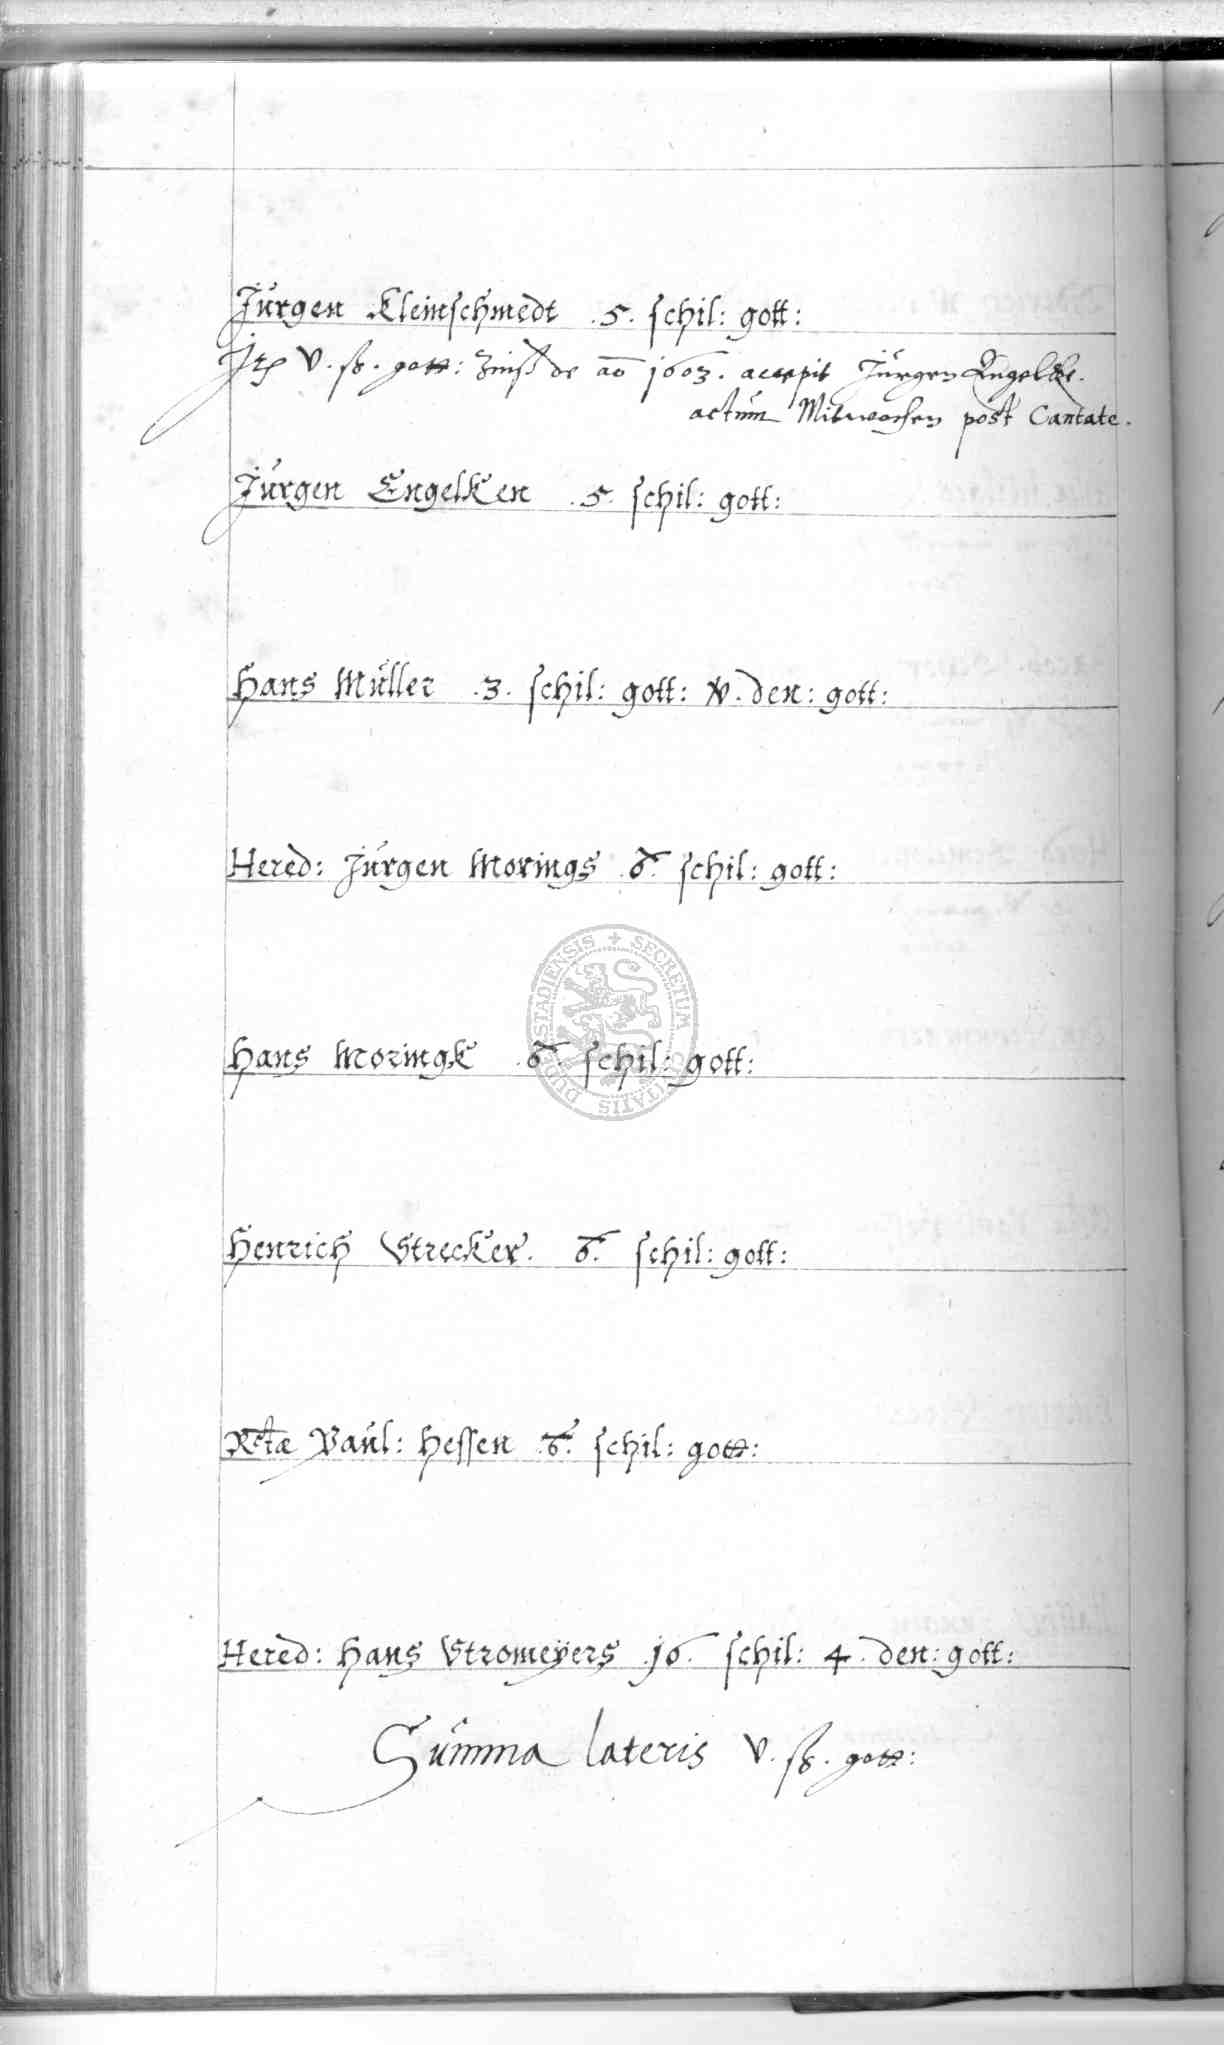 Jürgen Kleinschmedt .5. schil: gott:
Jtem V. ß. gott: Zinß de ao 1603. accepit Jürgen Engelke.
actum Mitwochen post Cantate.
Jürgen Engelken .5. schil: gott:
Hans Müller .3. schil: gott: V. den: gott:
Hered: Jürgen Morings 6. schil: gott:
Hans Moringk .6. schil: gott:
SECRETUM CIVITATIS DUDERSTADIENSIS
Henrich Strecker. 6. schil: gott:
Rctæ Paul: Hessen .6. schil: gott:
Hered: Hans Stromeÿers .16. schil: 4. den: gott:
Summa lateris V. ß. gott: